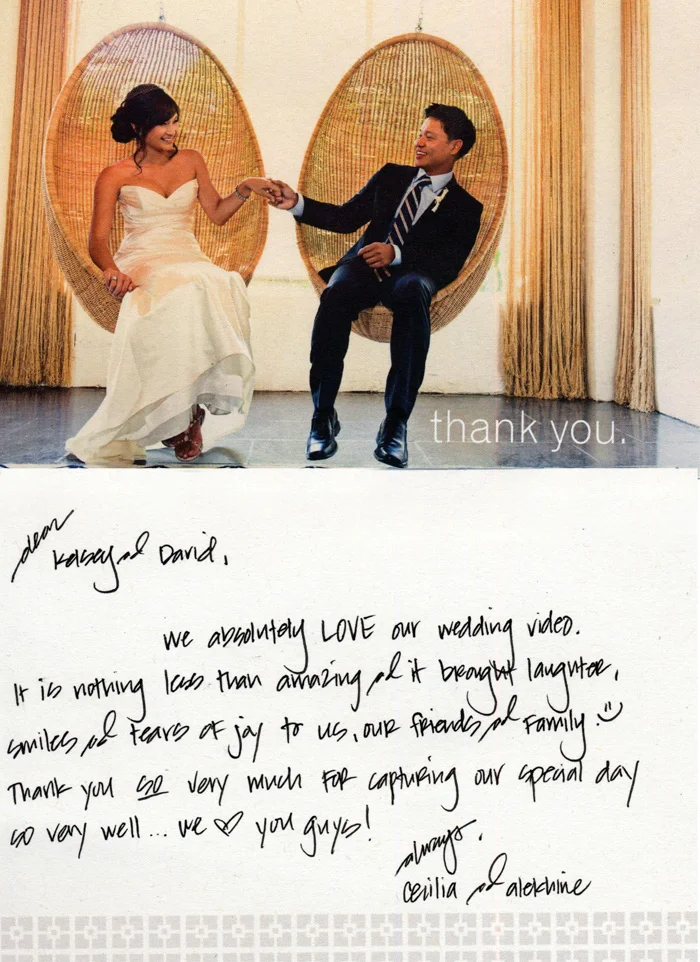 thank you.
dear
Kelsey and David,
we absolutely LOVE our wedding video.
It is nothing less than amazing and it brought laughter,
smiles and tears of joy to us, our friends and family! :)
Thank you so very much for capturing our special day
so very well... we ♡ you guys!
always,
Cecilia and alekhine